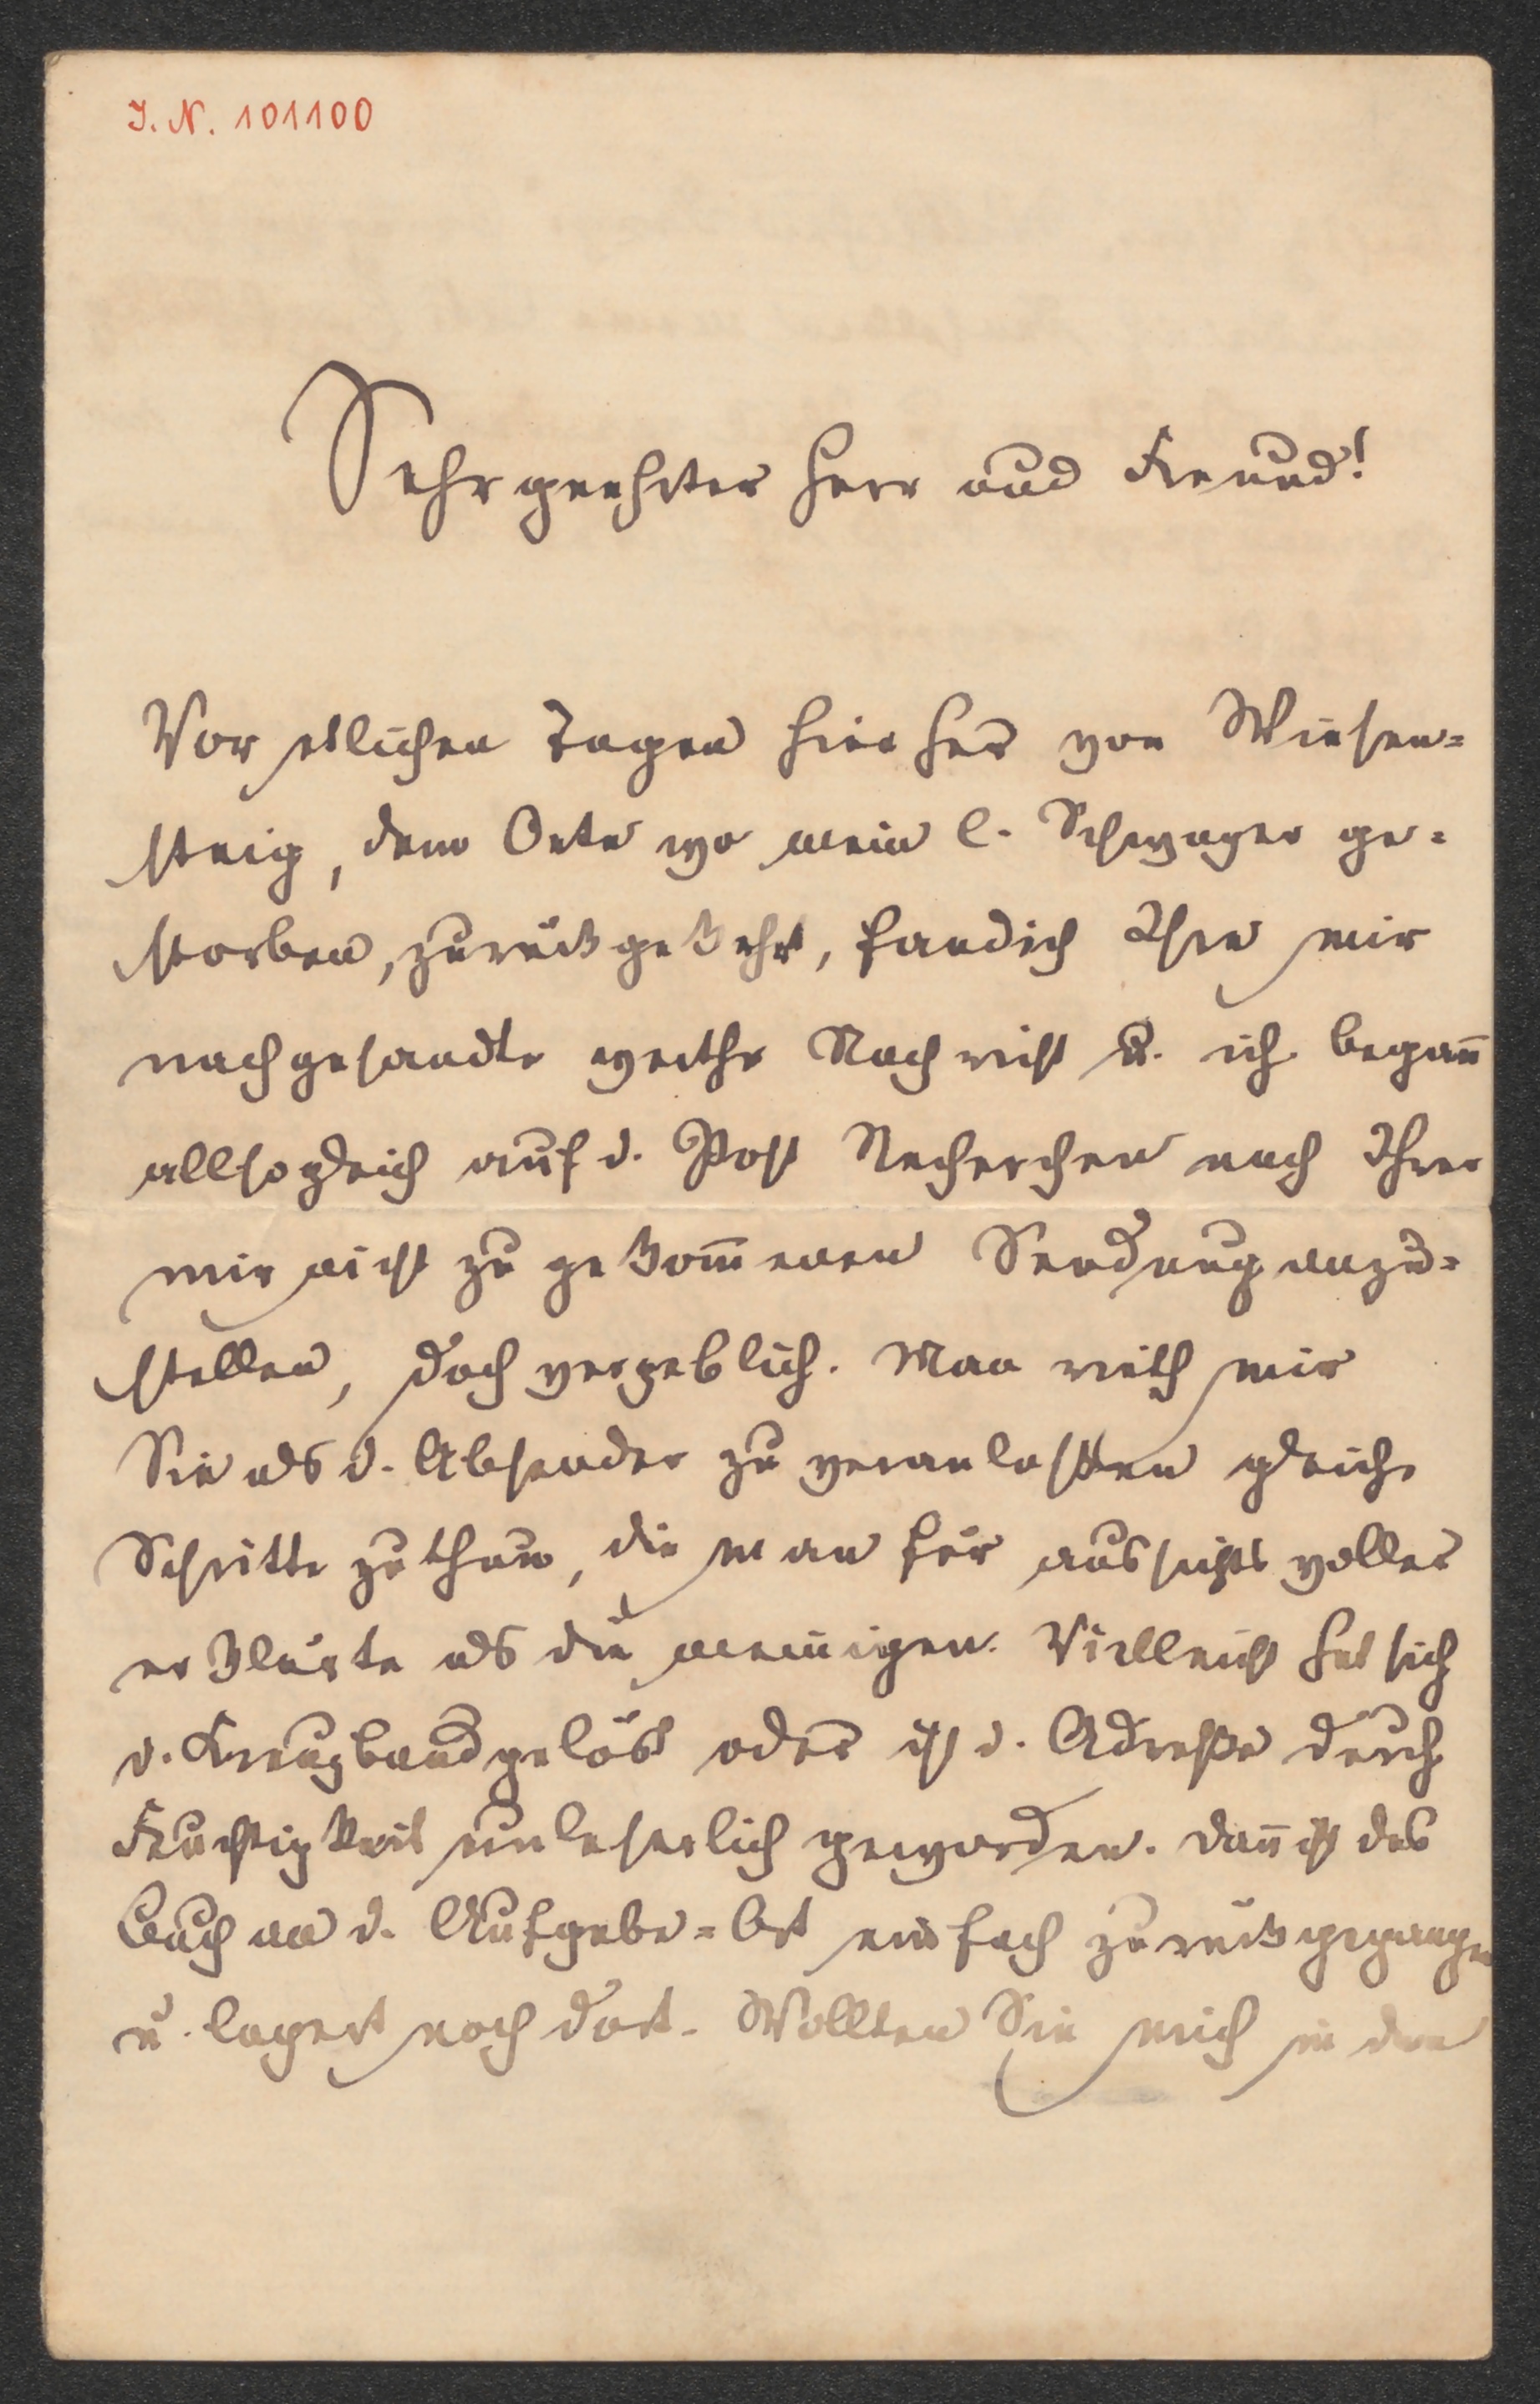 J. N. 101100
Sehr geehrter Herr und Freund!
Vor etlichen Tagen hieher von Wiesen=
steig, dem Orte wo mein l. Schwager ge=
storben, zurückgekehrt, fand ich Ihre mir
nachgesandte werthe Nachricht u. ich began̄
allsogleich auf d. Post Recherchen nach Ihrer
mir nicht zugekom̄enen Sendung anzu=
stellen, doch vergeblich. Man rieth mir
Sie als d. Absender zu veranlassen gleiche
Schritte zu thun, die man für aussichtsvoller
erklärte als die meinigen. Vielleicht hat sich
d. Kreuzband gelöst oder ist d. Adreße durch
Feuchtigkeit unleserlich geworden. Dan̄ ist das
Buch an d. Aufgabe=Ort einfach zurückgegangen
u. lagert noch dort. Wollten Sie mich in den